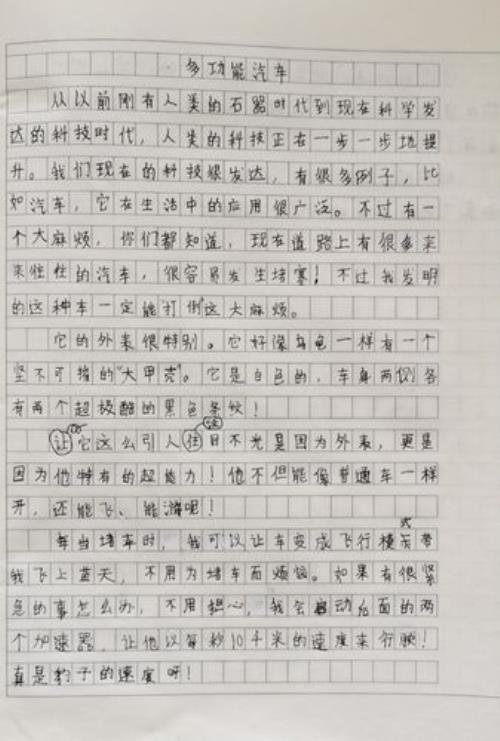 多功能汽车
从以前刚有人类的石器时代到现在科学发
达的科技时代,人类的科技正在一步一步地提
升。我们现在的科技很发达,有很多例子,比
如汽车,它在生活中的应用很广泛。不过有一
个大麻烦,你们都知道,现在道路上有很多来
来往往的汽车,很容易发生堵塞!不过我发明
的这种车一定能打倒这大麻烦。
它的外表很特别。它好像乌龟一样有一个
坚不可摧的“大甲壳”。它是白色的,车身两侧各
有两个超极酷的黑色条纹!
让它这么引人注目不光是因为外表,更是
因为他特有的超能力!他不但能像普通车一样
开,还能飞、能游呢!
每当堵车时,我可以让车变成飞行模式带
我飞上蓝天,不用为堵车而烦恼。如果有很紧
急的事怎么办,不用担心,我会启动后面的两
个加速器,让他以每秒10千米的速度来行驶!
真是豹子的速度呀!